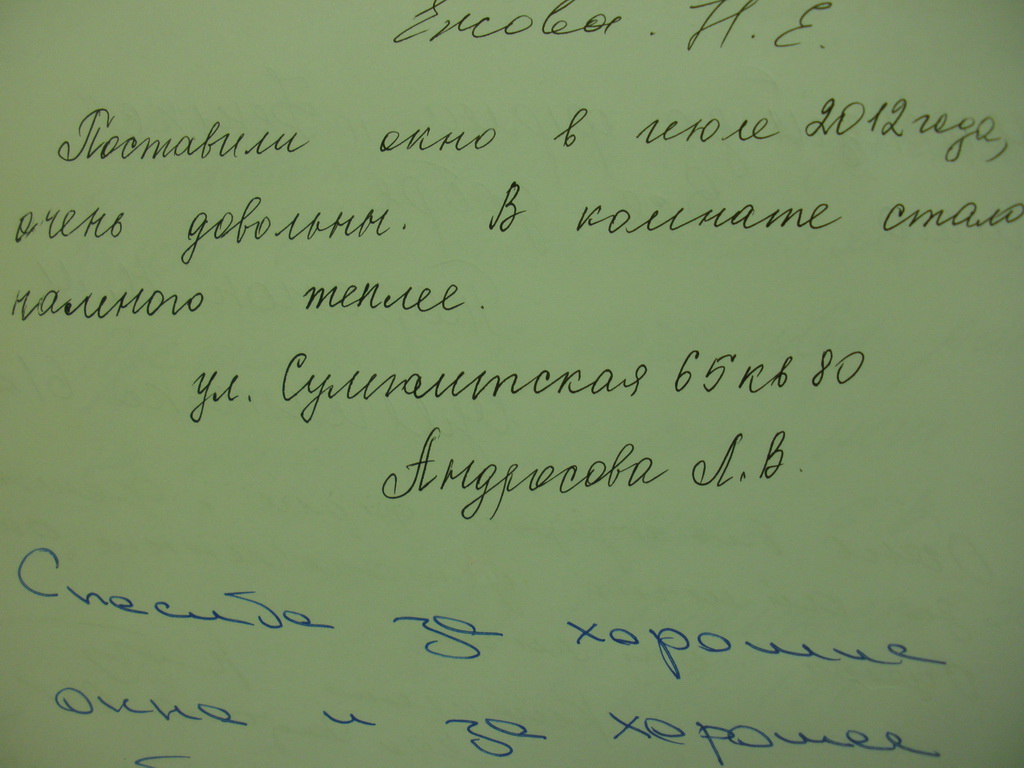 Ежова. Н. Е.
Поставили окно в июле 2012 года,
очень довольны. В комнате стало
намного теплее.
ул. Сумгаитская 65 кв 80
Андросова Л. В.
Спасибо за хорошие
окна и за хорошее